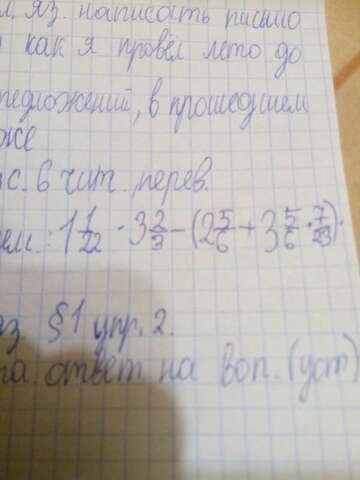 яз. написать письмо
как я провёл лето до
предложений, в прошедшем
же
с. 6 чит., перев.
ем.: 1 1/22 · 3 2/3 - (2 5/6 + 3 5/6 · 7/23) ·
яз. §1 упр. 2.
ответ на воп. (уст)